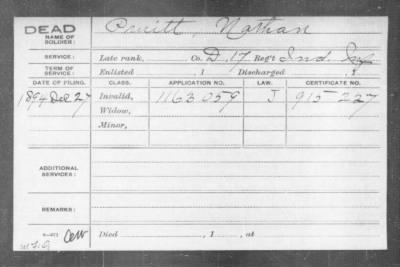 DEAD Pruitt, Nathan
NAME OF
SOLDIER:
SERVICE: Late rank, Co. D, 17 Reg't Ind. Inf
TERM OF
SERVICE: Enlisted 1 Discharged , 1
DATE OF FILING. CLASS. APPLICATION NO. LAW. CERTIFICATE NO.
1894 Dec 27 Invalid, 1163 059 J 915 227
Widow,
Minor,
ADDITIONAL
SERVICES:
REMARKS:
Died , 1 , at